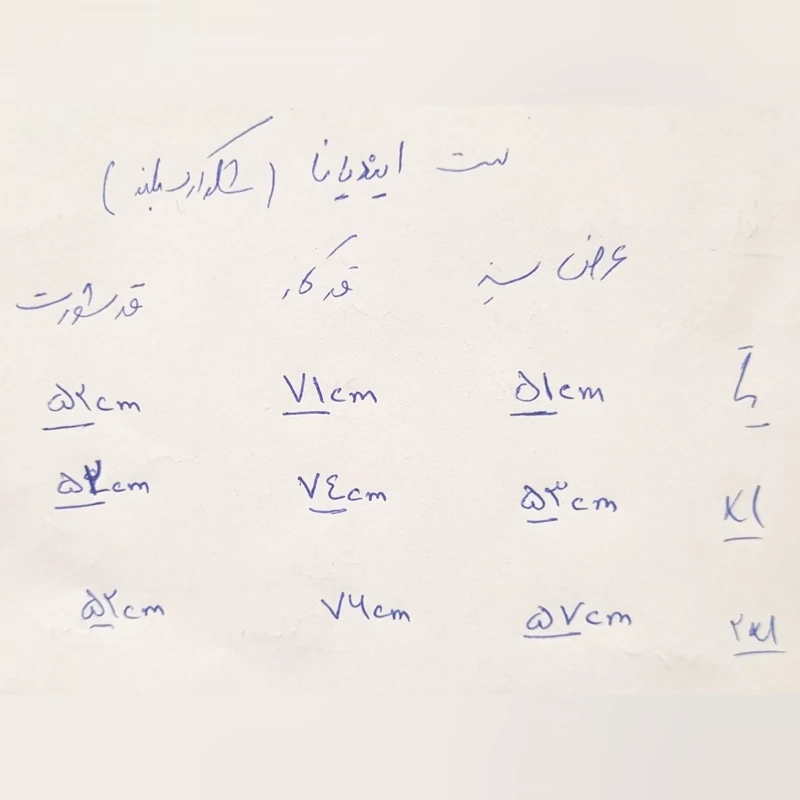 ست ایندیانا (شلوارک بلند)
عرض سینه قد کار قد شورت
L ۵۱cm ۷۱cm ۵۲cm
xl ۵۳cm ۷٤cm ۵۲cm
۲xl ۵۷cm ۷۶cm ۵۲cm